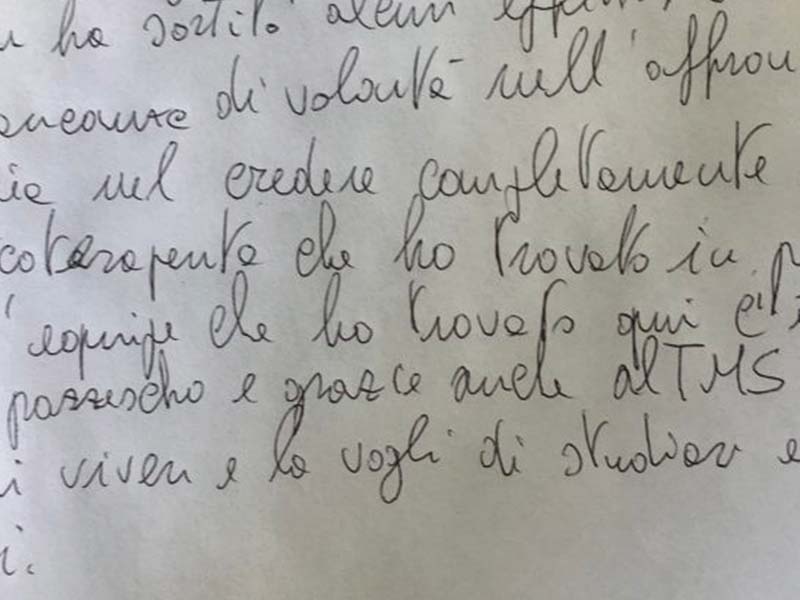 ha sortito alcun
di volontà nell'affron
nel credere completamente
coterapeuta che ho trovato in
equipe che ho trovato qui è
pazzescho e grazie anche al TMS
i viver e la vogli di studiar e
i.